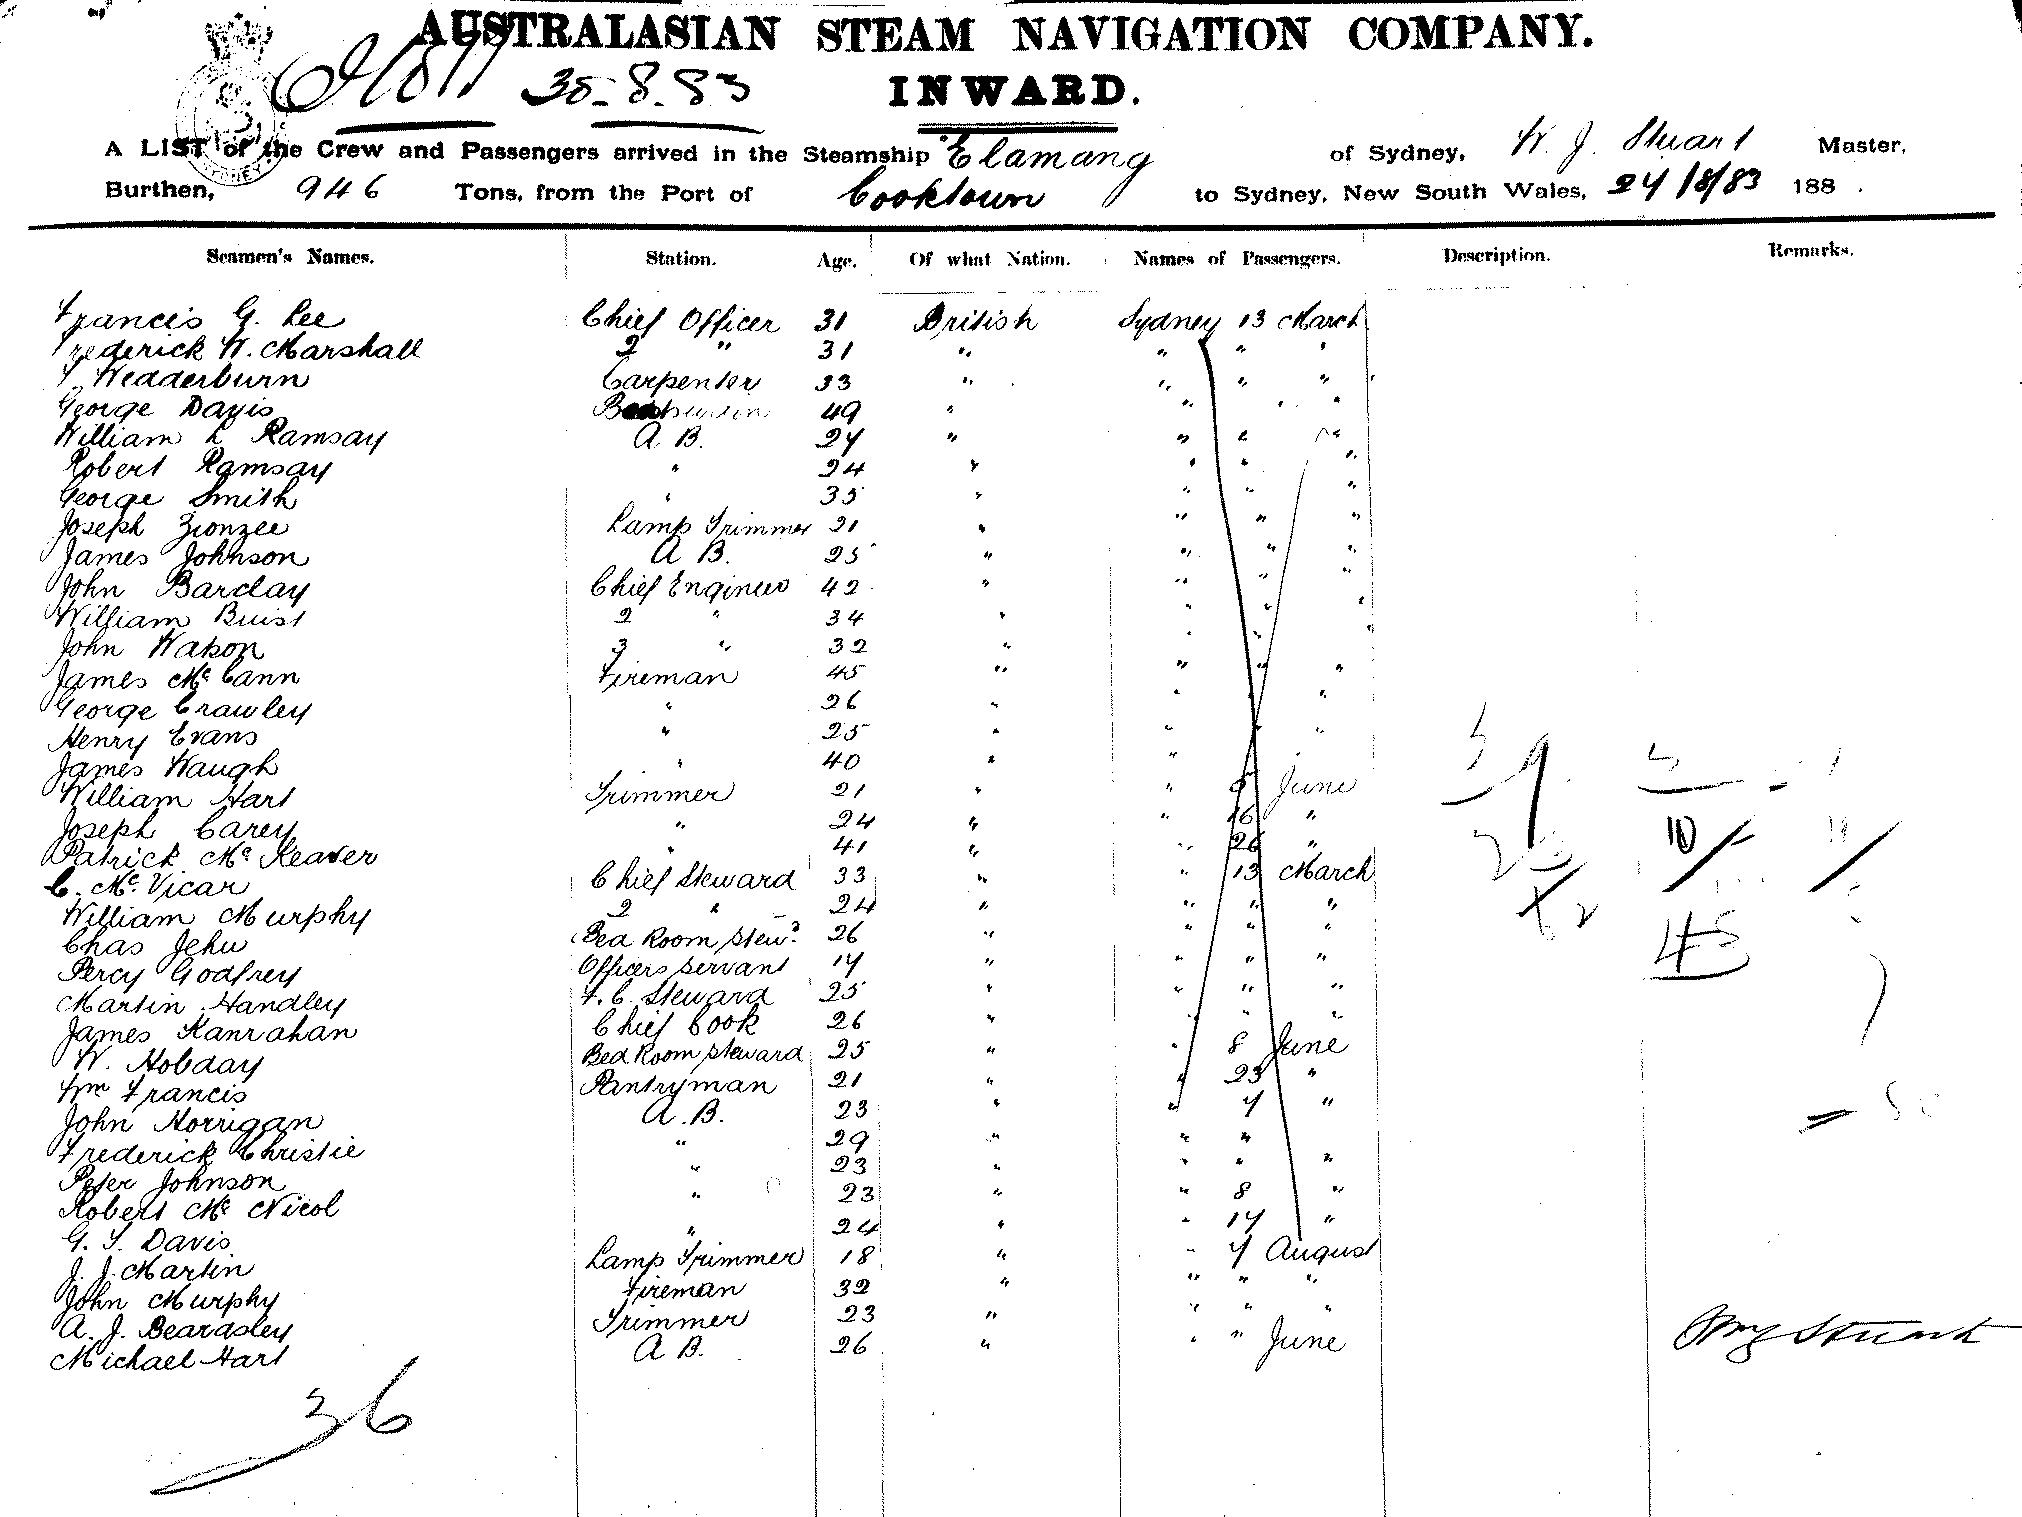 AUSTRALASIAN STEAM NAVIGATION COMPANY.
30-8.83 INWARD.
A LIST of the Crew and Passengers arrived in the Steamship Elamang of Sydney, W. J. Stuart Master,
Burthen, 946 Tons, from the Port of Cooktown to Sydney, New South Wales, 24/8/83 188 .
Seamen's Names. Station. Age. Of what Nation. Names of Passengers. Description. Remarks.
Francis G. Lee Chief Officer 31 British Sydney 13 March
Frederick W. Marshall 2 " 31 " " " "
T. Wedderburn Carpenter 33 " " " "
George Davis 49 " " " "
William L Ramsay A B. 24 " " " "
Robert Ramsay " 24 " " " "
George Smith " 35 " " " "
Joseph Zionzee Lamp Trimmer 21 " " " "
James Johnson A B. 25 " " " "
John Barclay Chief Engineer 42 " " " "
William Buist 2 " 34 " " " "
John Watson 3 " 32 " " " "
James McCann Fireman 45 " " " "
George Crawley " 26 " " " "
Henry Evans " 25 " " " "
James Waugh " 40 " "
William Hart Trimmer 21 " " 5 June
Joseph Carey " 24 " " 16 "
Patrick Mc Keaver " 41 " " 26 "
C. Mc Vicar Chief Steward 33 " " 13 March
William Murphy 2 " 24 " " " "
Chas Jehu Bed Room Stewd 26 " " " "
Percy Godfrey Officers Servant 14 " " " "
Martin Handley F. C. Steward 25 " " " "
James Hanrahan Chief Cook 26 " " " "
W. Hobday Bed Room Steward 25 " " 8 June
Wm Francis Pantryman 21 " " 23 "
John Horrigan A. B. 23 " " 4 "
Frederick Christie " 29 " " "
Peter Johnson " 23 " " " "
Robert Mc Nicol " 23 " " 8 "
G. T. Davis " 24 " " 14 "
J. J. Martin Lamp Trimmer 18 " " 4 August
John Murphy Fireman 32 " " " "
A. J. Beardsley Trimmer 23 " " " "
Michael Hart A B. 26 " " " June
Wm J Stuart
36